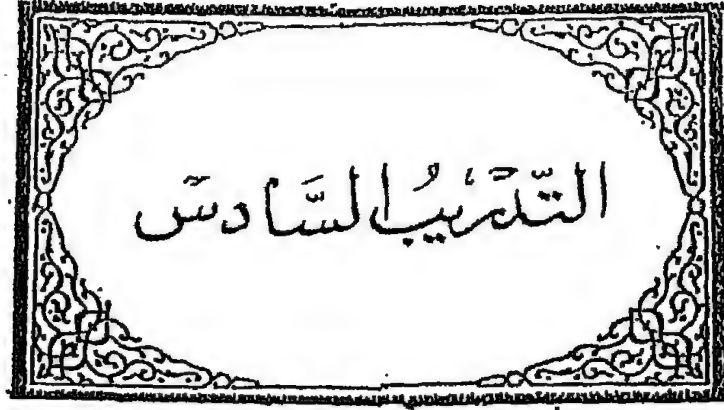 التَّدرْيبُ السَّادسْ